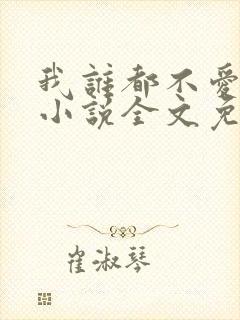 我誰都不愛
小說全文免
崔淑琴